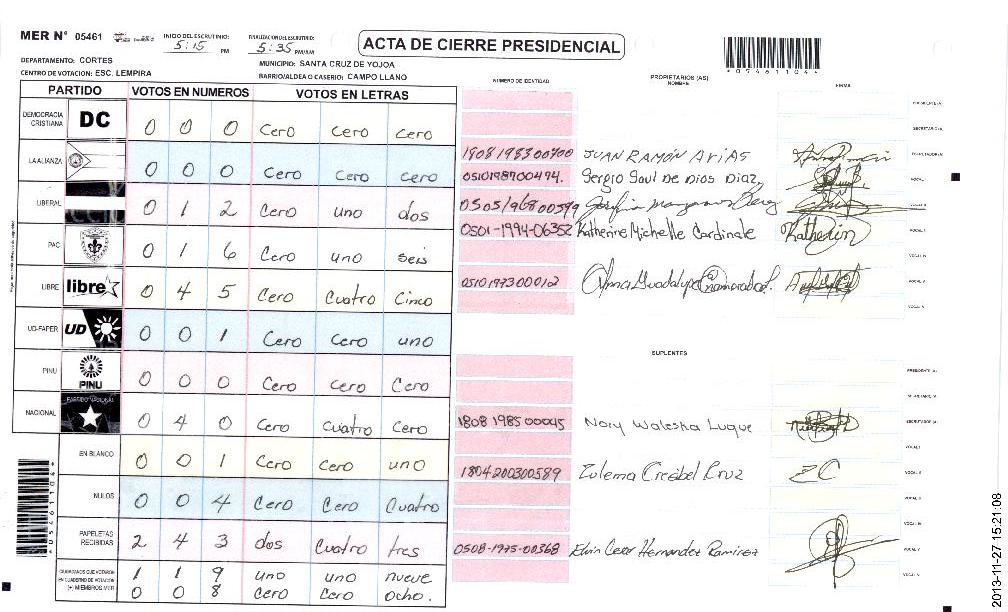 MER N° 05461
INICIO DEL ESCRUTINIO: 5:15 PM
FINALIZACION DEL ESCRUTINIO: 5:35 PM/AM
ACTA DE CIERRE PRESIDENCIAL
*05461104*
DEPARTAMENTO: CORTES
MUNICIPIO: SANTA CRUZ DE YOJOA
CENTRO DE VOTACION: ESC. LEMPIRA
BARRIO/ALDEA O CASERIO: CAMPO LLANO
PARTIDO VOTOS EN NUMEROS VOTOS EN LETRAS
NUMERO DE IDENTIDAD PROPIETARIOS (AS) NOMBRE FIRMA
DEMOCRACIA CRISTIANA DC 0 0 0 Cero Cero Cero
LA ALIANZA 0 0 0 Cero Cero Cero
LIBERAL 0 1 2 Cero uno dos
PAC 0 1 6 Cero uno seis
LIBRE libre 0 4 5 Cero Cuatro Cinco
UD-FAPER UD 0 0 1 Cero Cero uno
PINU PINU 0 0 0 Cero Cero Cero
NACIONAL PARTIDO NACIONAL 0 4 0 Cero Cuatro Cero
EN BLANCO 0 0 1 Cero Cero uno
NULOS 0 0 4 Cero Cero Cuatro
PAPELETAS RECIBIDAS 2 4 3 dos Cuatro tres
CIUDADANOS QUE VOTARON EN CUADERNO DE VOTACION 1 1 9 uno uno nueve
(+) MIEMBROS MER 0 0 8 Cero Cero ocho.
PRESIDENTE (A)
SECRETARIO (A)
1808198300700 JUAN RAMÓN AriAS ESCRUTADOR (A)
0510198700494. Sergio Saul De Dios Diaz VOCAL I
0505196800599
0501-1994-06352 Katherine Michelle Cardinale Katherin
0510197300012 Guadalupe
SUPLENTES
PRESIDENTE (A)
SECRETARIO (A)
1808 1985 00045 Nory Waleska Luque ESCRUTADOR (A)
VOCAL I
1804200300589 Zulema Crisbel Cruz ZC VOCAL II
VOCAL III
VOCAL IV
0508-1975-00368 Elvin Cesar Hernandez Ramirez VOCAL V
*05461104*
2013-11-27 15:21:08